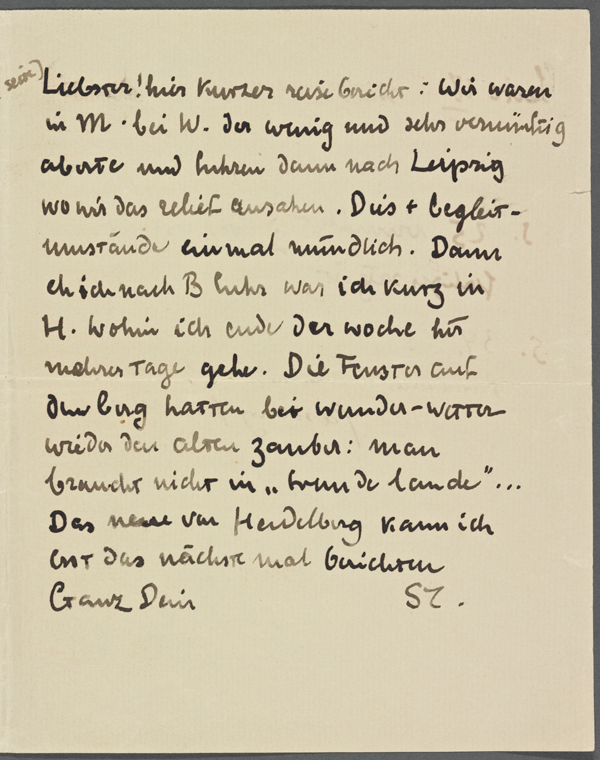 sein)
Liebster! hier kurzer reise bericht : Wir waren
in M. bei W. der wenig und sehr vernünftig
aborte und fuhren dann nach Leipzig
wo wir das relief ansahen. Dies + begleit-
umstände einmal mündlich. Dann
eh ich nach B fuhr war ich kurz in
H. wohin ich ende der woche für
mehrer Tage gehe. Die Fenster auf
den berg hatten bei wunder-wetter
wieder den alten zauber: man
braucht nicht in „fremde lande"...
Das neue von Heidelberg kann ich
erst das nächste mal berichten
Ganz Dein St.